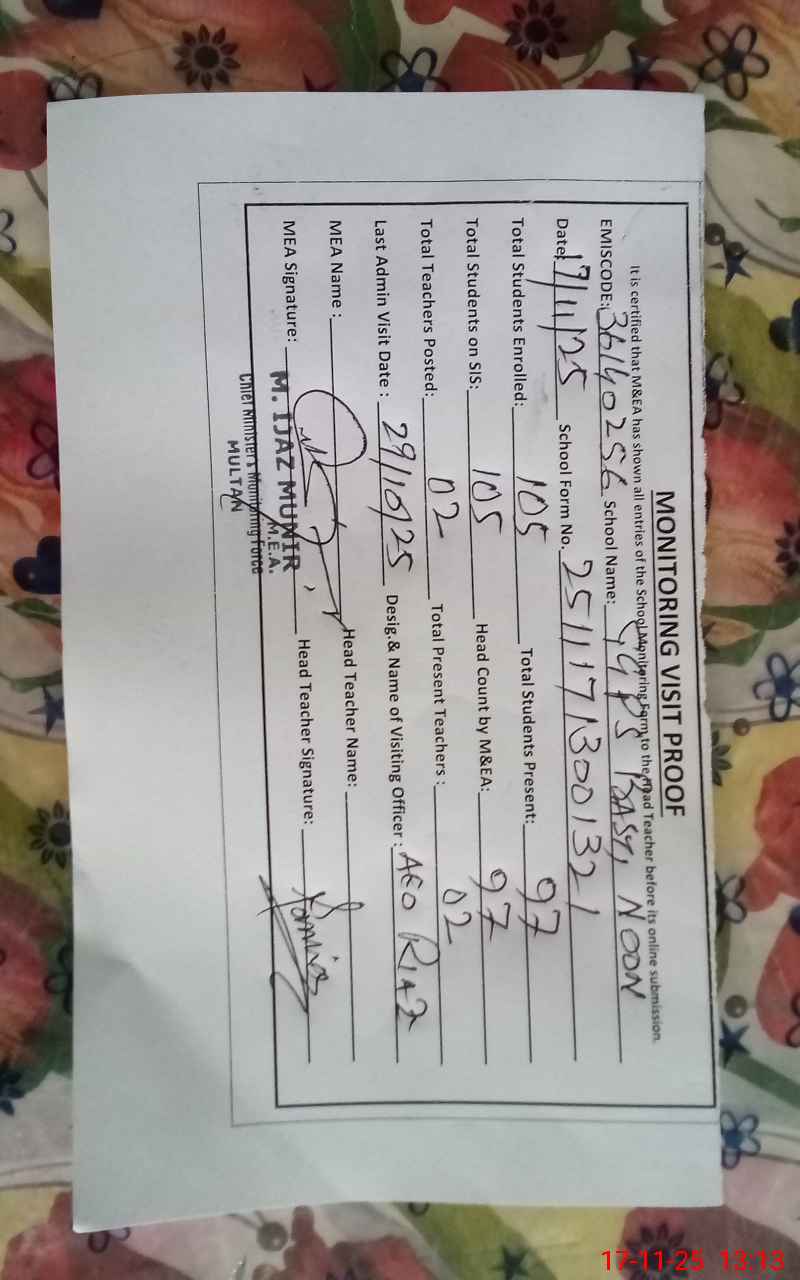 MONITORING VISIT PROOF
It is certified that M&EA has shown all entries of the School Monitoring Form to the Head Teacher before its online submission.
EMISCODE: 36140256 School Name: GGPS BASTI NOON
Date: 17/11/25 School Form No. 25111713001321
Total Students Enrolled: 105 Total Students Present: 97
Total Students on SIS: 105 Head Count by M&EA: 97
Total Teachers Posted: 02 Total Present Teachers : 02
Last Admin Visit Date : 29/10/25 Desig.& Name of Visiting Officer : AEO RIAZ
MEA Name : Head Teacher Name:
MEA Signature: Head Teacher Signature:
M. IJAZ MUNIR
M.E.A.
Chief Minister's Monitoring Force
MULTAN
17-11-25 13:13